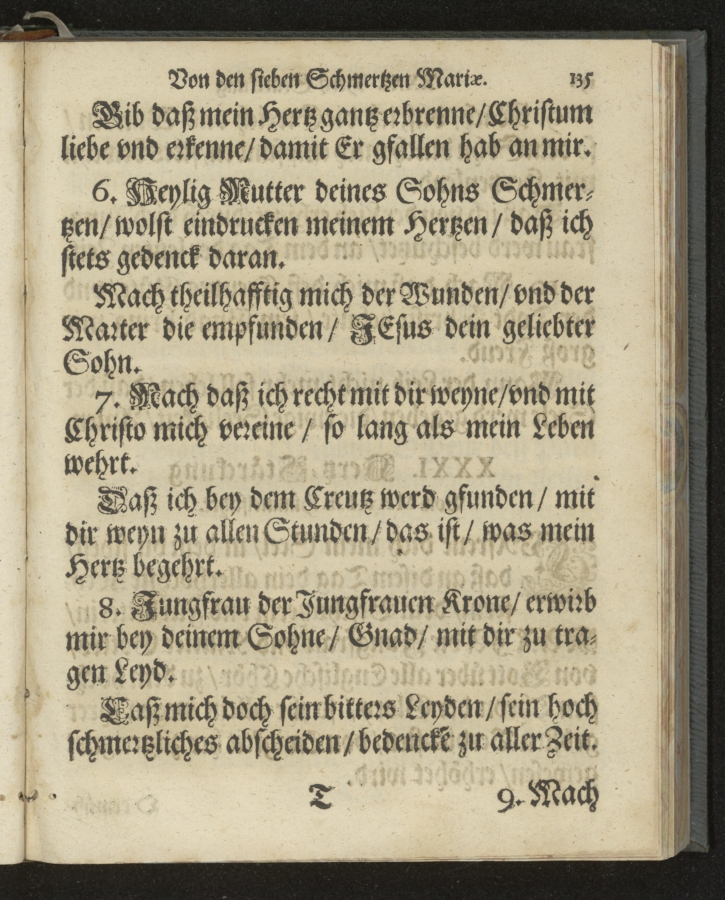 Von den sieben Schmertzen Mariæ. 135
Gib daß mein Hertz gantz erbrenne/ Christum
liebe vnd erkenne/ damit Er gfallen hab an mir.
6. Heylig Mutter deines Sohns Schmer⸗
tzen/ wolst eindrucken meinem Hertzen / daß ich
stets gedenck daran.
Mach theilhafftig mich der Wunden/ vnd der
Marter die empfunden / JEsus dein geliebter
Sohn.
7. Mach daß ich recht mit dir weyne/vnd mit
Christo mich vereine / so lang als mein Leben
wehrt.
Daß ich bey dem Creutz werd gfunden / mit
dir weyn zu allen Stunden / das ist / was mein
Hertz begehrt.
8. Jungfrau der Jungfrauen Krone/ erwirb
mir bey deinem Sohne / Gnad/ mit dir zu tra⸗
gen Leyd.
Daß mich doch sein bitters Leyden / sein hoch
schmertzliches abscheiden / bedenckē zu aller Zeit.
T 9. Mach